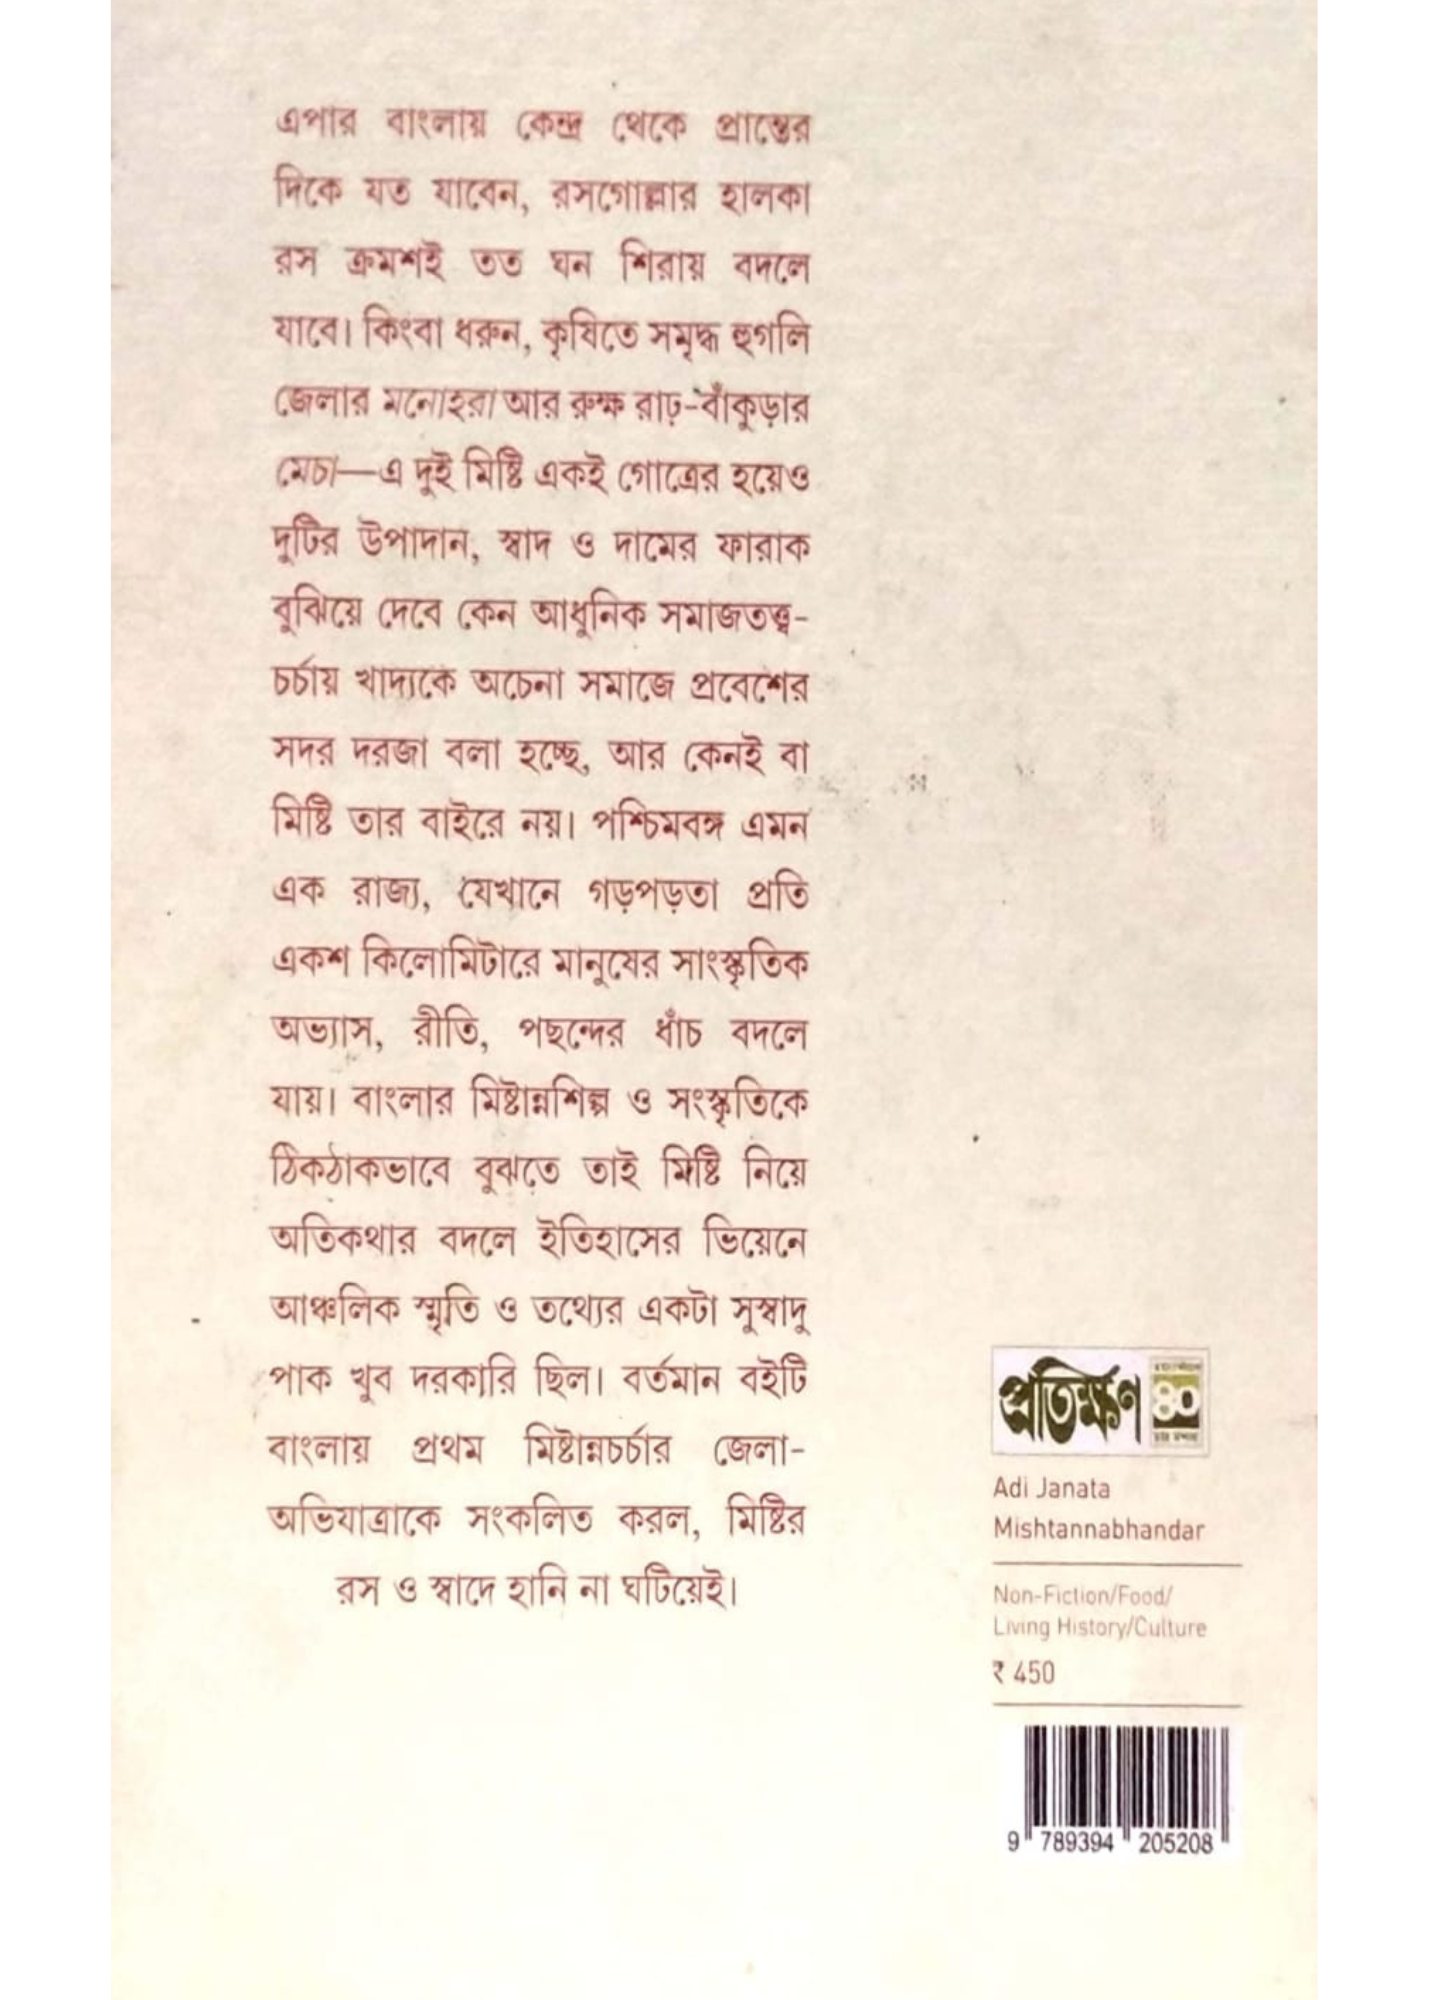 এপার বাংলায় কেন্দ্র থেকে প্রান্তের
দিকে যত যাবেন, রসগোল্লার হালকা
রস ক্রমশই তত ঘন শিরায় বদলে
যাবে। কিংবা ধরুন, কৃষিতে সমৃদ্ধ হুগলি
জেলার মনোহরা আর রুক্ষ রাঢ়-বাঁকুড়ার
মেচা—এ দুই মিষ্টি একই গোত্রের হয়েও
দুটির উপাদান, স্বাদ ও দামের ফারাক
বুঝিয়ে দেবে কেন আধুনিক সমাজতত্ত্ব-
চর্চায় খাদ্যকে অচেনা সমাজে প্রবেশের
সদর দরজা বলা হচ্ছে, আর কেনই বা
মিষ্টি তার বাইরে নয়। পশ্চিমবঙ্গ এমন
এক রাজ্য, যেখানে গড়পড়তা প্রতি
একশ কিলোমিটারে মানুষের সাংস্কৃতিক
অভ্যাস, রীতি, পছন্দের ধাঁচ বদলে
যায়। বাংলার মিষ্টান্নশিল্প ও সংস্কৃতিকে
ঠিকঠাকভাবে বুঝতে তাই মিষ্টি নিয়ে
অতিকথার বদলে ইতিহাসের ভিয়েনে
আঞ্চলিক স্মৃতি ও তথ্যের একটা সুস্বাদু
পাক খুব দরকারি ছিল। বর্তমান বইটি
বাংলায় প্রথম মিষ্টান্নচর্চার জেলা-
অভিযাত্রাকে সংকলিত করল, মিষ্টির
রস ও স্বাদে হানি না ঘটিয়েই।
প্রতিক্ষণ ৪০
Adi Janata
Mishtannabhandar
Non-Fiction/Food/
Living History/Culture
₹ 450
9 789394 205208